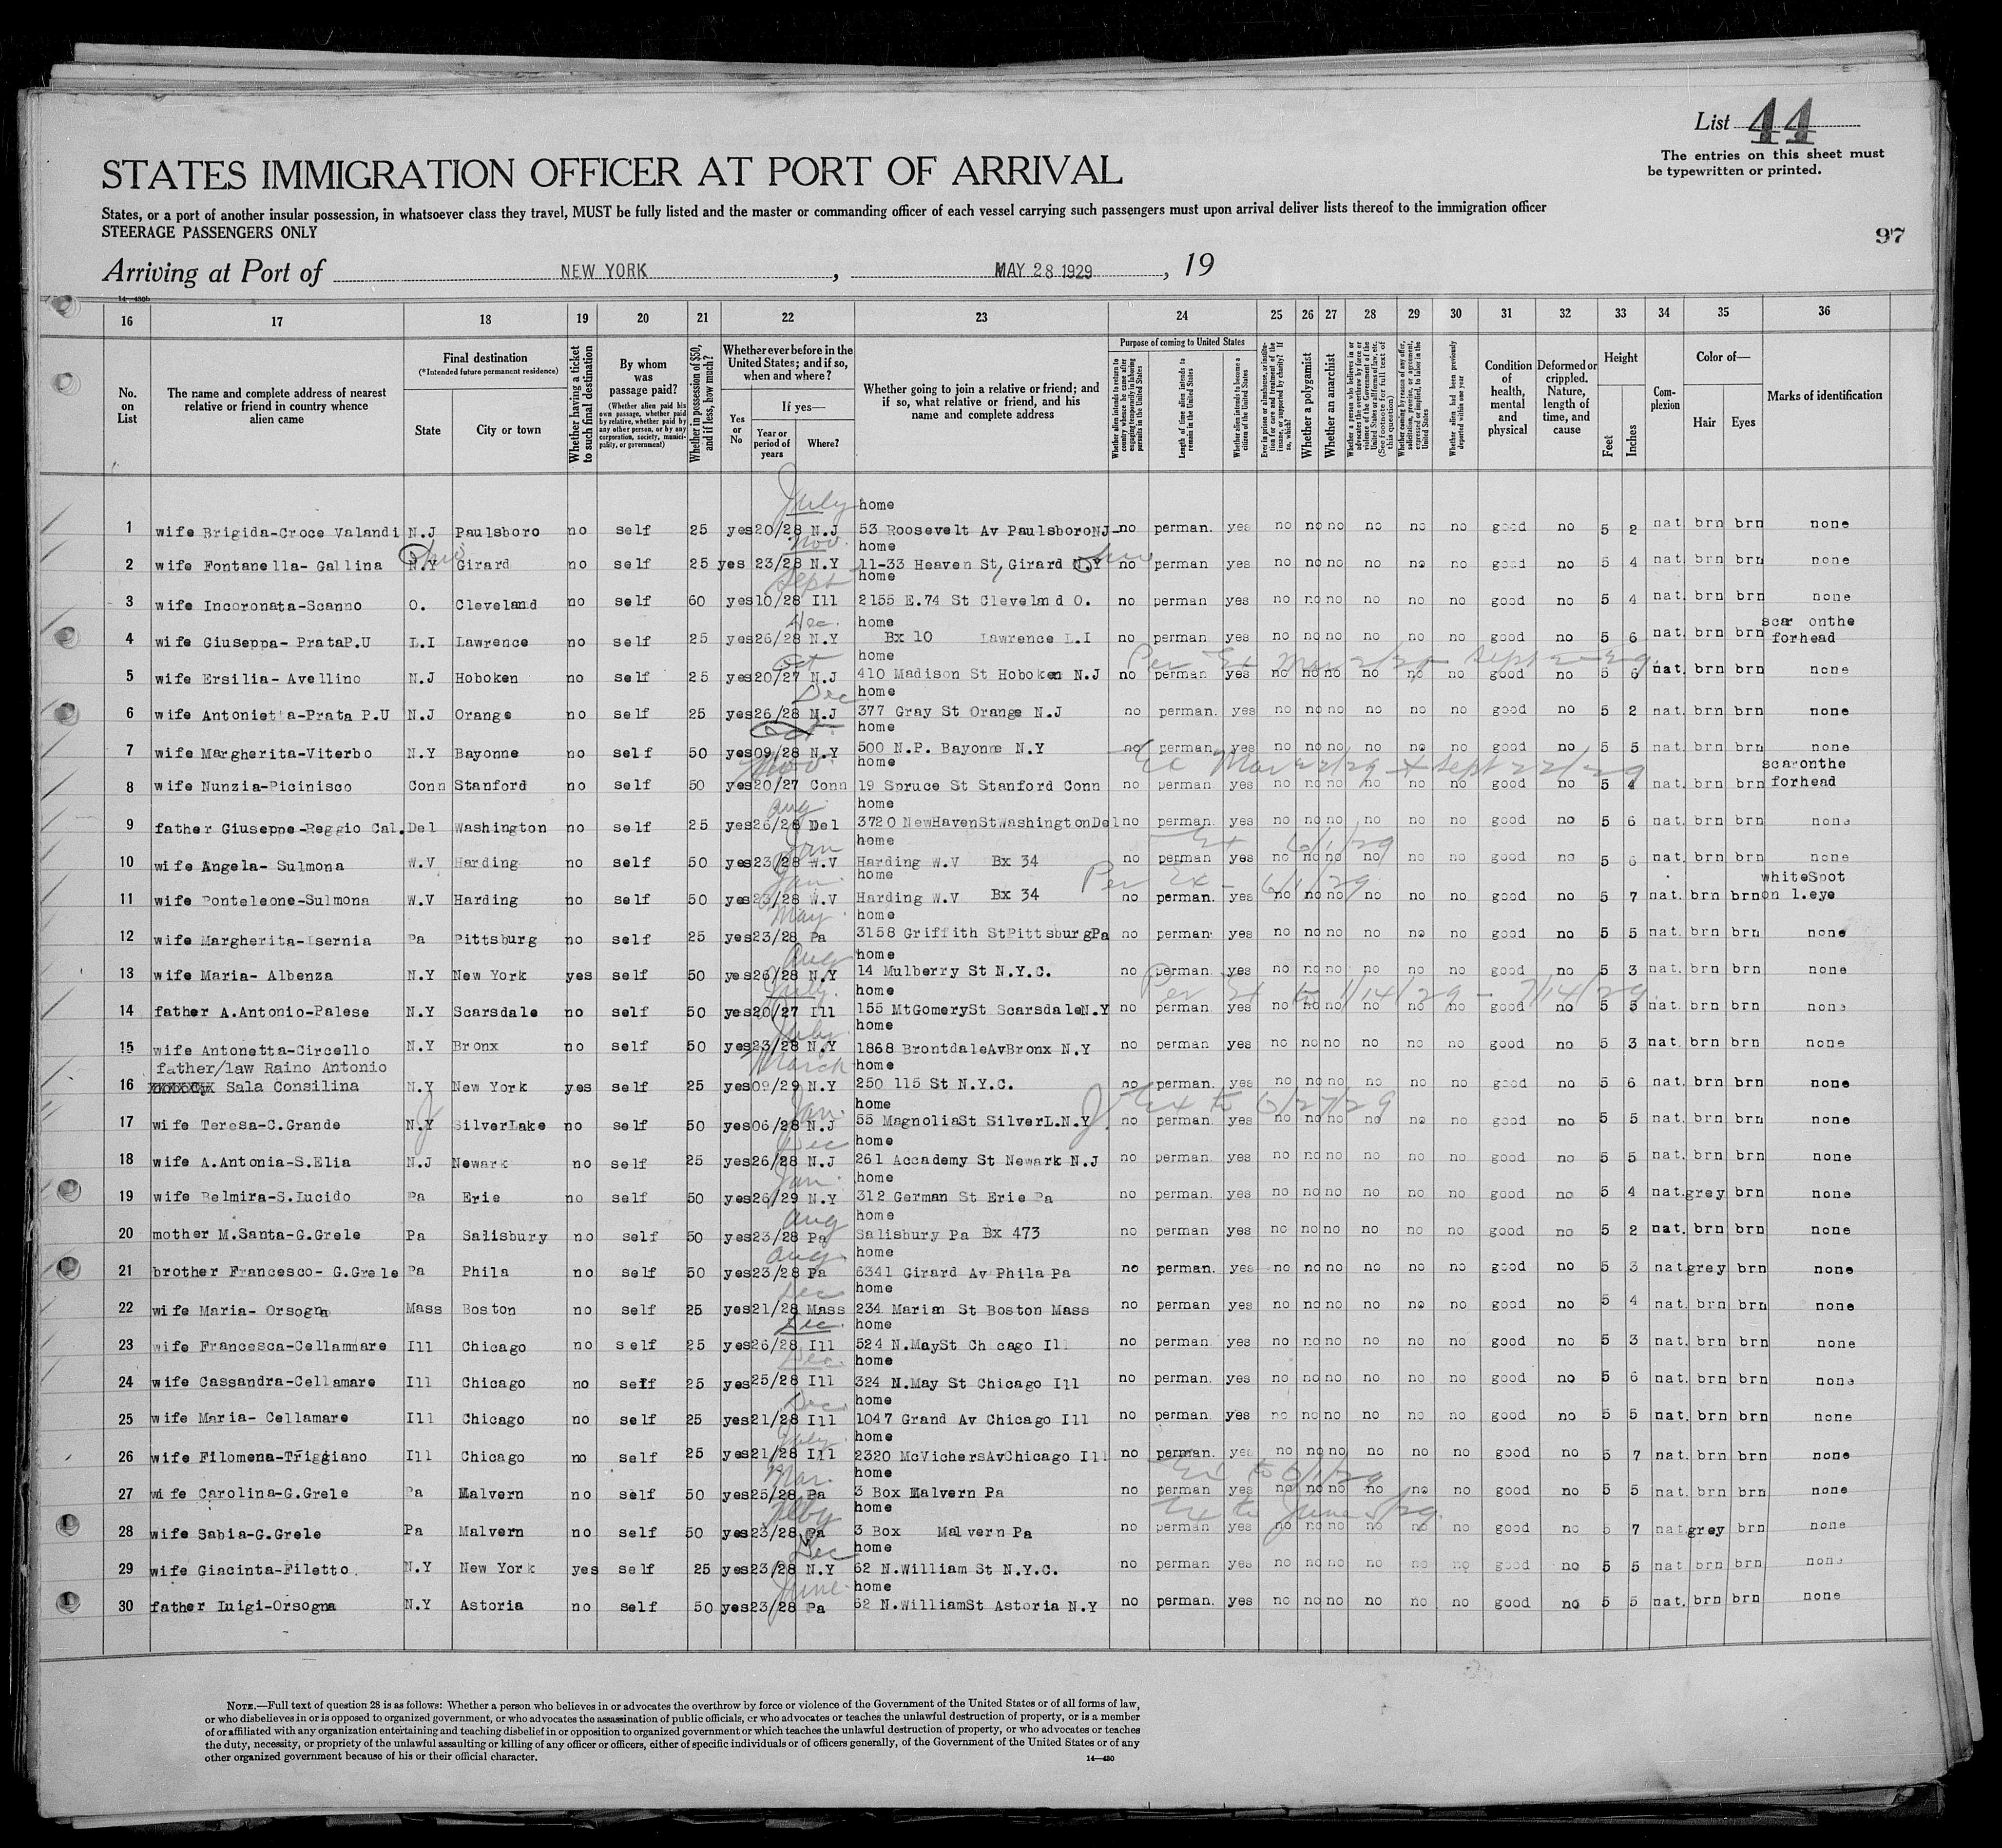 List 44
The entries on this sheet must
be typewritten or printed.
STATES IMMIGRATION OFFICER AT PORT OF ARRIVAL
States, or a port of another insular possession, in whatsoever class they travel, MUST be fully listed and the master or commanding officer of each vessel carrying such passengers must upon arrival deliver lists thereof to the immigration officer
STEERAGE PASSENGERS ONLY
97
Arriving at Port of NEW YORK, MAY 28 1929, 19
14—430b
16 17 18 19 20 21 22 23 24 25 26 27 28 29 30 31 32 33 34 35 36
No. on List
The name and complete address of nearest relative or friend in country whence alien came
Final destination
(*Intended future permanent residence)
State
City or town
Whether having a ticket to such final destination
By whom was passage paid?
(Whether alien paid his own passage, whether paid by relative, whether paid by any other person, or by any corporation, society, municipality, or government)
Whether in possession of $50, and if less, how much?
Whether ever before in the United States; and if so, when and where?
Yes or No
If yes—
Year or period of years
Where?
Whether going to join a relative or friend; and if so, what relative or friend, and his name and complete address
Purpose of coming to United States
Whether alien intends to return to country whence he came after engaging temporarily in laboring pursuits in the United States
Length of time alien intends to remain in the United States
Whether alien intends to become a citizen of the United States
Ever in prison or almshouse, or institution for care and treatment of the insane, or supported by charity? If so, which?
Whether a polygamist
Whether an anarchist
Whether a person who believes in or advocates the overthrow by force or violence of the Government of the United States or all forms of law, etc. (See footnote for full text of this question)
Whether coming by reason of any offer, solicitation, promise, or agreement, expressed or implied, to labor in the United States
Whether alien had been previously deported within one year
Condition of health, mental and physical
Deformed or crippled. Nature, length of time, and cause
Height
Feet
Inches
Complexion
Color of—
Hair
Eyes
Marks of identification
July home
1 wife Brigida-Croce Valandi N.J Paulsboro no self 25 yes 20/28 N.J 53 Roosevelt Av Paulsboro NJ no perman. yes no no no no no no good no 5 2 nat brn brn none
Ohio Nov. home Ohio
2 wife Fontanella- Gallina N.Y Girard no self 25 yes 23/28 N.Y 11-33 Heaven St, Girard N.Y no perman yes no no no no no no good no 5 4 nat. brn brn none
Sept home
3 wife Incoronata-Scanno O. Cleveland no self 60 yes 10/28 Ill 2155 E.74 St Cleveland O. no perman yes no no no no no no good no 5 4 nat. brn brn none
Dec. home
4 wife Giuseppa- Prata P.U L.I Lawrence no self 25 yes 26/28 N.Y Bx 10 Lawrence L.I no perman yes no no no no no no good no 5 6 nat. brn brn scar onthe forhead
Oct home Per Ext Mar 2/29 Sept 2-29
5 wife Ersilia- Avellino N.J Hoboken no self 25 yes 20/27 N.J 410 Madison St Hoboken N.J no perman yes no no no no no no good no 5 6 nat. brn brn none
Dec home
6 wife Antonietta-Prata P.U N.J Orange no self 25 yes 26/28 N.J 377 Gray St Orange N.J no perman. yes no no no no no no good no 5 2 nat. brn brn none
Oct. home
7 wife Margherita-Viterbo N.Y Bayonne no self 50 yes 09/28 N.Y 500 N.P. Bayonne N.Y no perman. yes no no no no no no good no 5 5 nat. brn brn none
Nov. home Ex Mar 22/29 + Sept 22/29
8 wife Nunzia-Picinisco Conn Stanford no self 50 yes 20/27 Conn 19 Spruce St Stanford Conn no perman yes no no no no no no good no 5 4 nat. brn brn scaronthe forhead
Aug home
9 father Giuseppe-Reggio Cal. Del Washington no self 25 yes 26/28 Del 3720 NewHavenStWashingtonDel no perman. yes no no no no no no good no 5 6 nat. brn brn none
Jan home Ex 6/1/29
10 wife Angela- Sulmona W.V Harding no self 50 yes 23/28 W.V Harding W.V Bx 34 no perman yes no no no no no no good no 5 6 nat. brn brn none
Jan. home Per Ex - 6/1/29
11 wife Ponteleone-Sulmona W.V Harding no self 50 yes 23/28 W.V Harding W.V Bx 34 no perman. yes no no no no no no good no 5 7 nat. brn brn whiteSpot on l.eye
May home
12 wife Margherita-Isernia Pa Pittsburg no self 25 yes 23/28 Pa 3158 Griffith StPittsburgPa no perman yes no no no no no no good no 5 5 nat. brn brn none
Aug home
13 wife Maria- Albenza N.Y New York yes self 50 yes 26/28 N.Y 14 Mulberry St N.Y.C. no perman. yes no no no no no no good no 5 3 nat. brn brn none
July. home Per Ex to 1/14/29 - 7/14/29
14 father A.Antonio-Palese N.Y Scarsdale no self 50 yes 20/27 Ill 155 MtGomerySt ScarsdaleN.Y no perman. yes no no no no no no good no 5 5 nat. brn brn none
July home
15 wife Antonetta-Circello N.Y Bronx no self 50 yes 23/28 N.Y 1868 BrontdaleAvBronx N.Y no perman yes no no no no no no good no 5 3 nat. brn brn none
father/law Raino Antonio March home
16 Sala Consilina N.Y New York yes self 25 yes 09/29 N.Y 250 115 St N.Y.C. no perman. yes no no no no no no good no 5 6 nat. brn brn none
J Jan. home J Ex to 6/27/29
17 wife Teresa-C.Grande N.Y SilverLake no self 50 yes 06/28 N.J 55 MagnoliaSt SilverL.N.Y. no perman. yes no no no no no no good no 5 5 nat. brn brn none
Dec home
18 wife A.Antonia-S.Elia N.J Newark no self 25 yes 26/28 N.J 261 Accademy St Newark N.J no perman. yes no no no no no no good no 5 5 nat. brn brn none
Jan. home
19 wife Belmira-S.Lucido Pa Erie no self 50 yes 26/29 N.Y 312 German St Erie Pa no perman. yes no no no no no no good no 5 4 nat. grey brn none
Aug home
20 mother M.Santa-G.Grele Pa Salisbury no self 50 yes 23/28 Pa Salisbury Pa Bx 473 no perman yes no no no no no no good no 5 2 nat. brn brn none
Aug. home
21 brother Francesco- G.Grele Pa Phila no self 50 yes 23/28 Pa 6341 Girard Av Phila Pa no perman. yes no no no no no no good no 5 3 nat. grey brn none
Dec home
22 wife Maria- Orsogna Mass Boston no self 25 yes 21/28 Mass 234 Marian St Boston Mass no perman yes no no no no no no good no 5 4 nat. brn brn none
Dec. home
23 wife Francesca-Cellammare Ill Chicago no self 25 yes 26/28 Ill 524 N.MaySt Ch cago Ill no perman. yes no no no no no no good no 5 3 nat. brn brn none
Dec. home
24 wife Cassandra-Cellamare Ill Chicago no self 25 yes 25/28 Ill 324 N.May St Chicago Ill no perman. yes no no no no no no good no 5 6 nat. brn brn none
Dec. home
25 wife Maria- Cellamare Ill Chicago no self 25 yes 21/28 Ill 1047 Grand Av Chicago Ill no perman. yes no no no no no no good no 5 5 nat. brn brn none
July. home
26 wife Filomena-Triggiano Ill Chicago no self 25 yes 21/28 Ill 2320 McVichersAvChicago Ill no perman. yes no no no no no no good no 5 7 nat. brn brn none
Mar. home Ex to 6/1/29
27 wife Carolina-G.Grele Pa Malvern no self 50 yes 25/28 Pa 3 Box Malvern Pa no perman yes no no no no no no good no 5 5 nat. brn brn none
Feby home Ex to June 5/29.
28 wife Sabia-G.Grele Pa Malvern no self 50 yes 23/28 Pa 3 Box Malvern Pa no perman yes no no no no no no good no 5 7 nat grey brn none
Dec home
29 wife Giacinta-Filetto. N.Y New York yes self 25 yes 23/28 N.Y 62 N.William St N.Y.C. no perman. yes no no no no no no good no 5 5 nat brn brn none
June. home
30 father Luigi-Orsogna N.Y Astoria no self 50 yes 23/28 Pa 52 N.WilliamSt Astoria N.Y no perman. yes no no no no no no good no 5 5 nat. brn brn none
NOTE.—Full text of question 28 is as follows: Whether a person who believes in or advocates the overthrow by force or violence of the Government of the United States or of all forms of law,
or who disbelieves in or is opposed to organized government, or who advocates the assassination of public officials, or who advocates or teaches the unlawful destruction of property, or is a member
of or affiliated with any organization entertaining and teaching disbelief in or opposition to organized government or which teaches the unlawful destruction of property, or who advocates or teaches
the duty, necessity, or propriety of the unlawful assaulting or killing of any officer or officers, either of specific individuals or of officers generally, of the Government of the United States or of any
other organized government because of his or their official character.
14—430